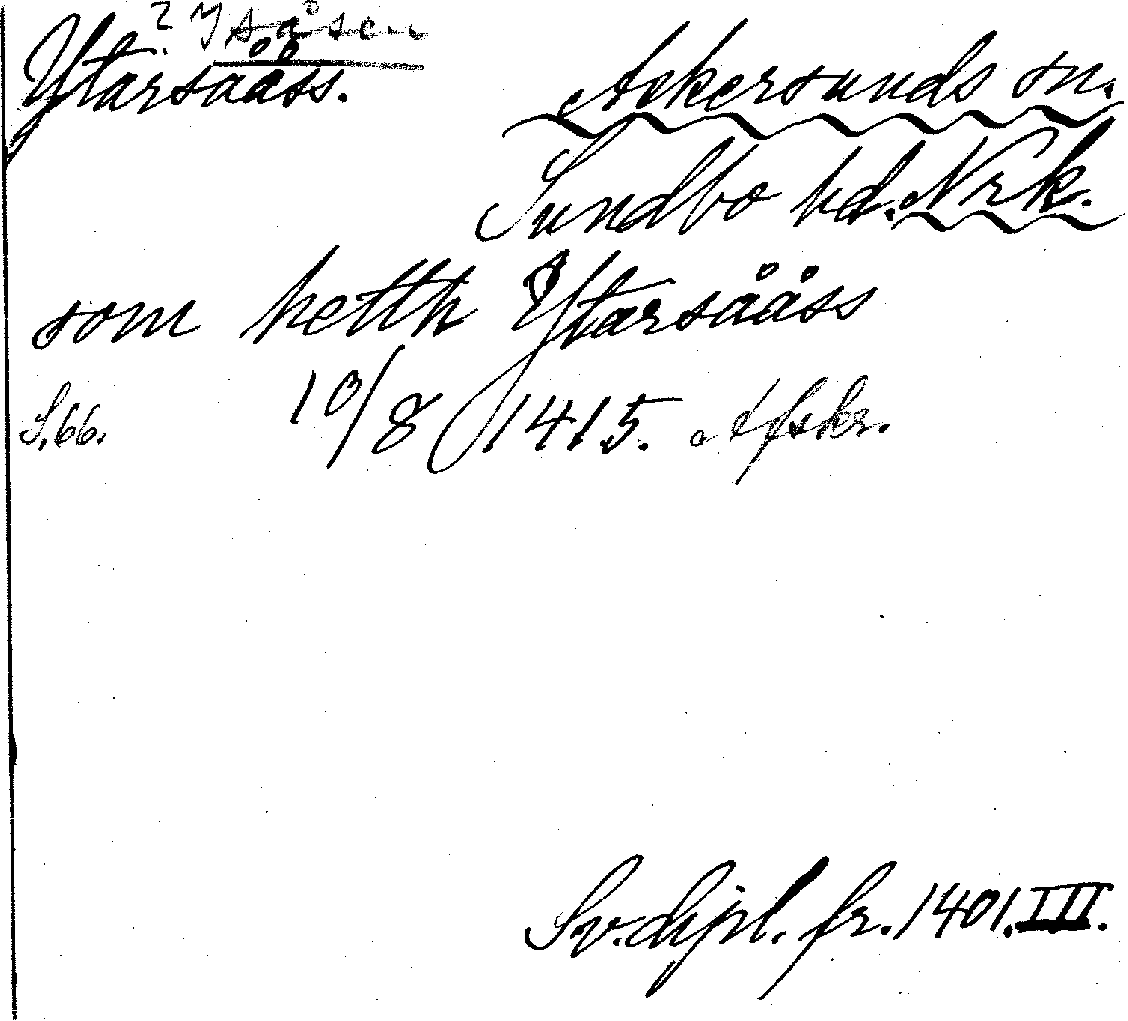 ? Ysåsen
Ytarsååss.
Askersunds sn.
Sundbo hd. Nrk.
som hetth Ytarsååss
S. 66. 10/8 1415. Afskr.
Sv. dipl. fr. 1401. III.